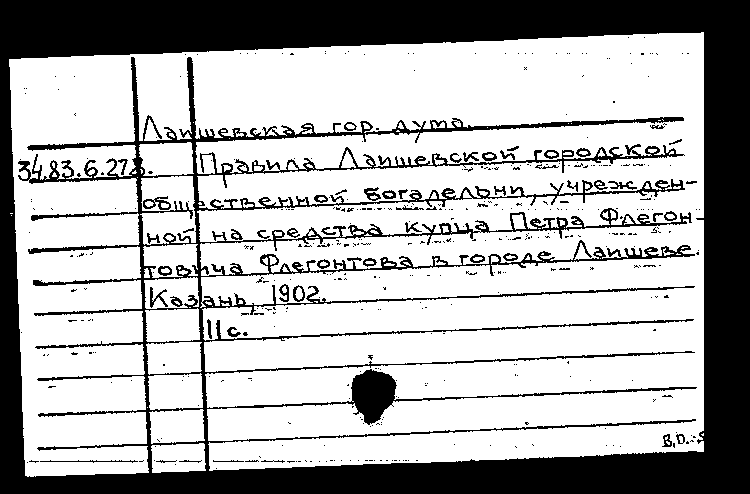 Лаишевская гор. дума.
34.83.6.273. Правила Лаишевской городской
общественной богадельни, учрежден-
ной на средства купца Петра Флегон-
товича Флегонтова в городе Лаишеве.
Казань, 1902.
11 с.